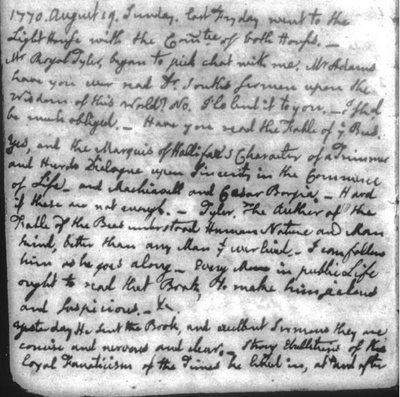 1770. August 19. Sunday. Last Fryday went to the
Light House with the Comtee. of both Houses.—
Mr. Royal Tyler, began to pick chat with me. Mr. Adams
have you ever read Dr. Souths Sermon upon the
Wisdom of this World? No. I'le lend it to you.— I shd
be much obliged.— Have you read the Fable of ye Bees.
Yes, and the Marquis of Hallifax's Character of a Trimmer
and Hurds Dialogue upon Sincerity in the Commerce
of Life—and Machiavell and Caesar Borgia.— Hard
if these are not enough.— Tyler. The Author of the
Fable of the Bees understood Human Nature and Man
kind, better than any Man yt ever lived.— I can follow
him as he goes along.— Every Man in public Life
ought to read that Book, to make him jealous
and suspicious.— &c
Yesterday He sent the Book, and excellent Sermons they are
concise and nervous and clear.— Strong Ebullitions of the
loyal Fanaticism of the Times he lived in, at and after